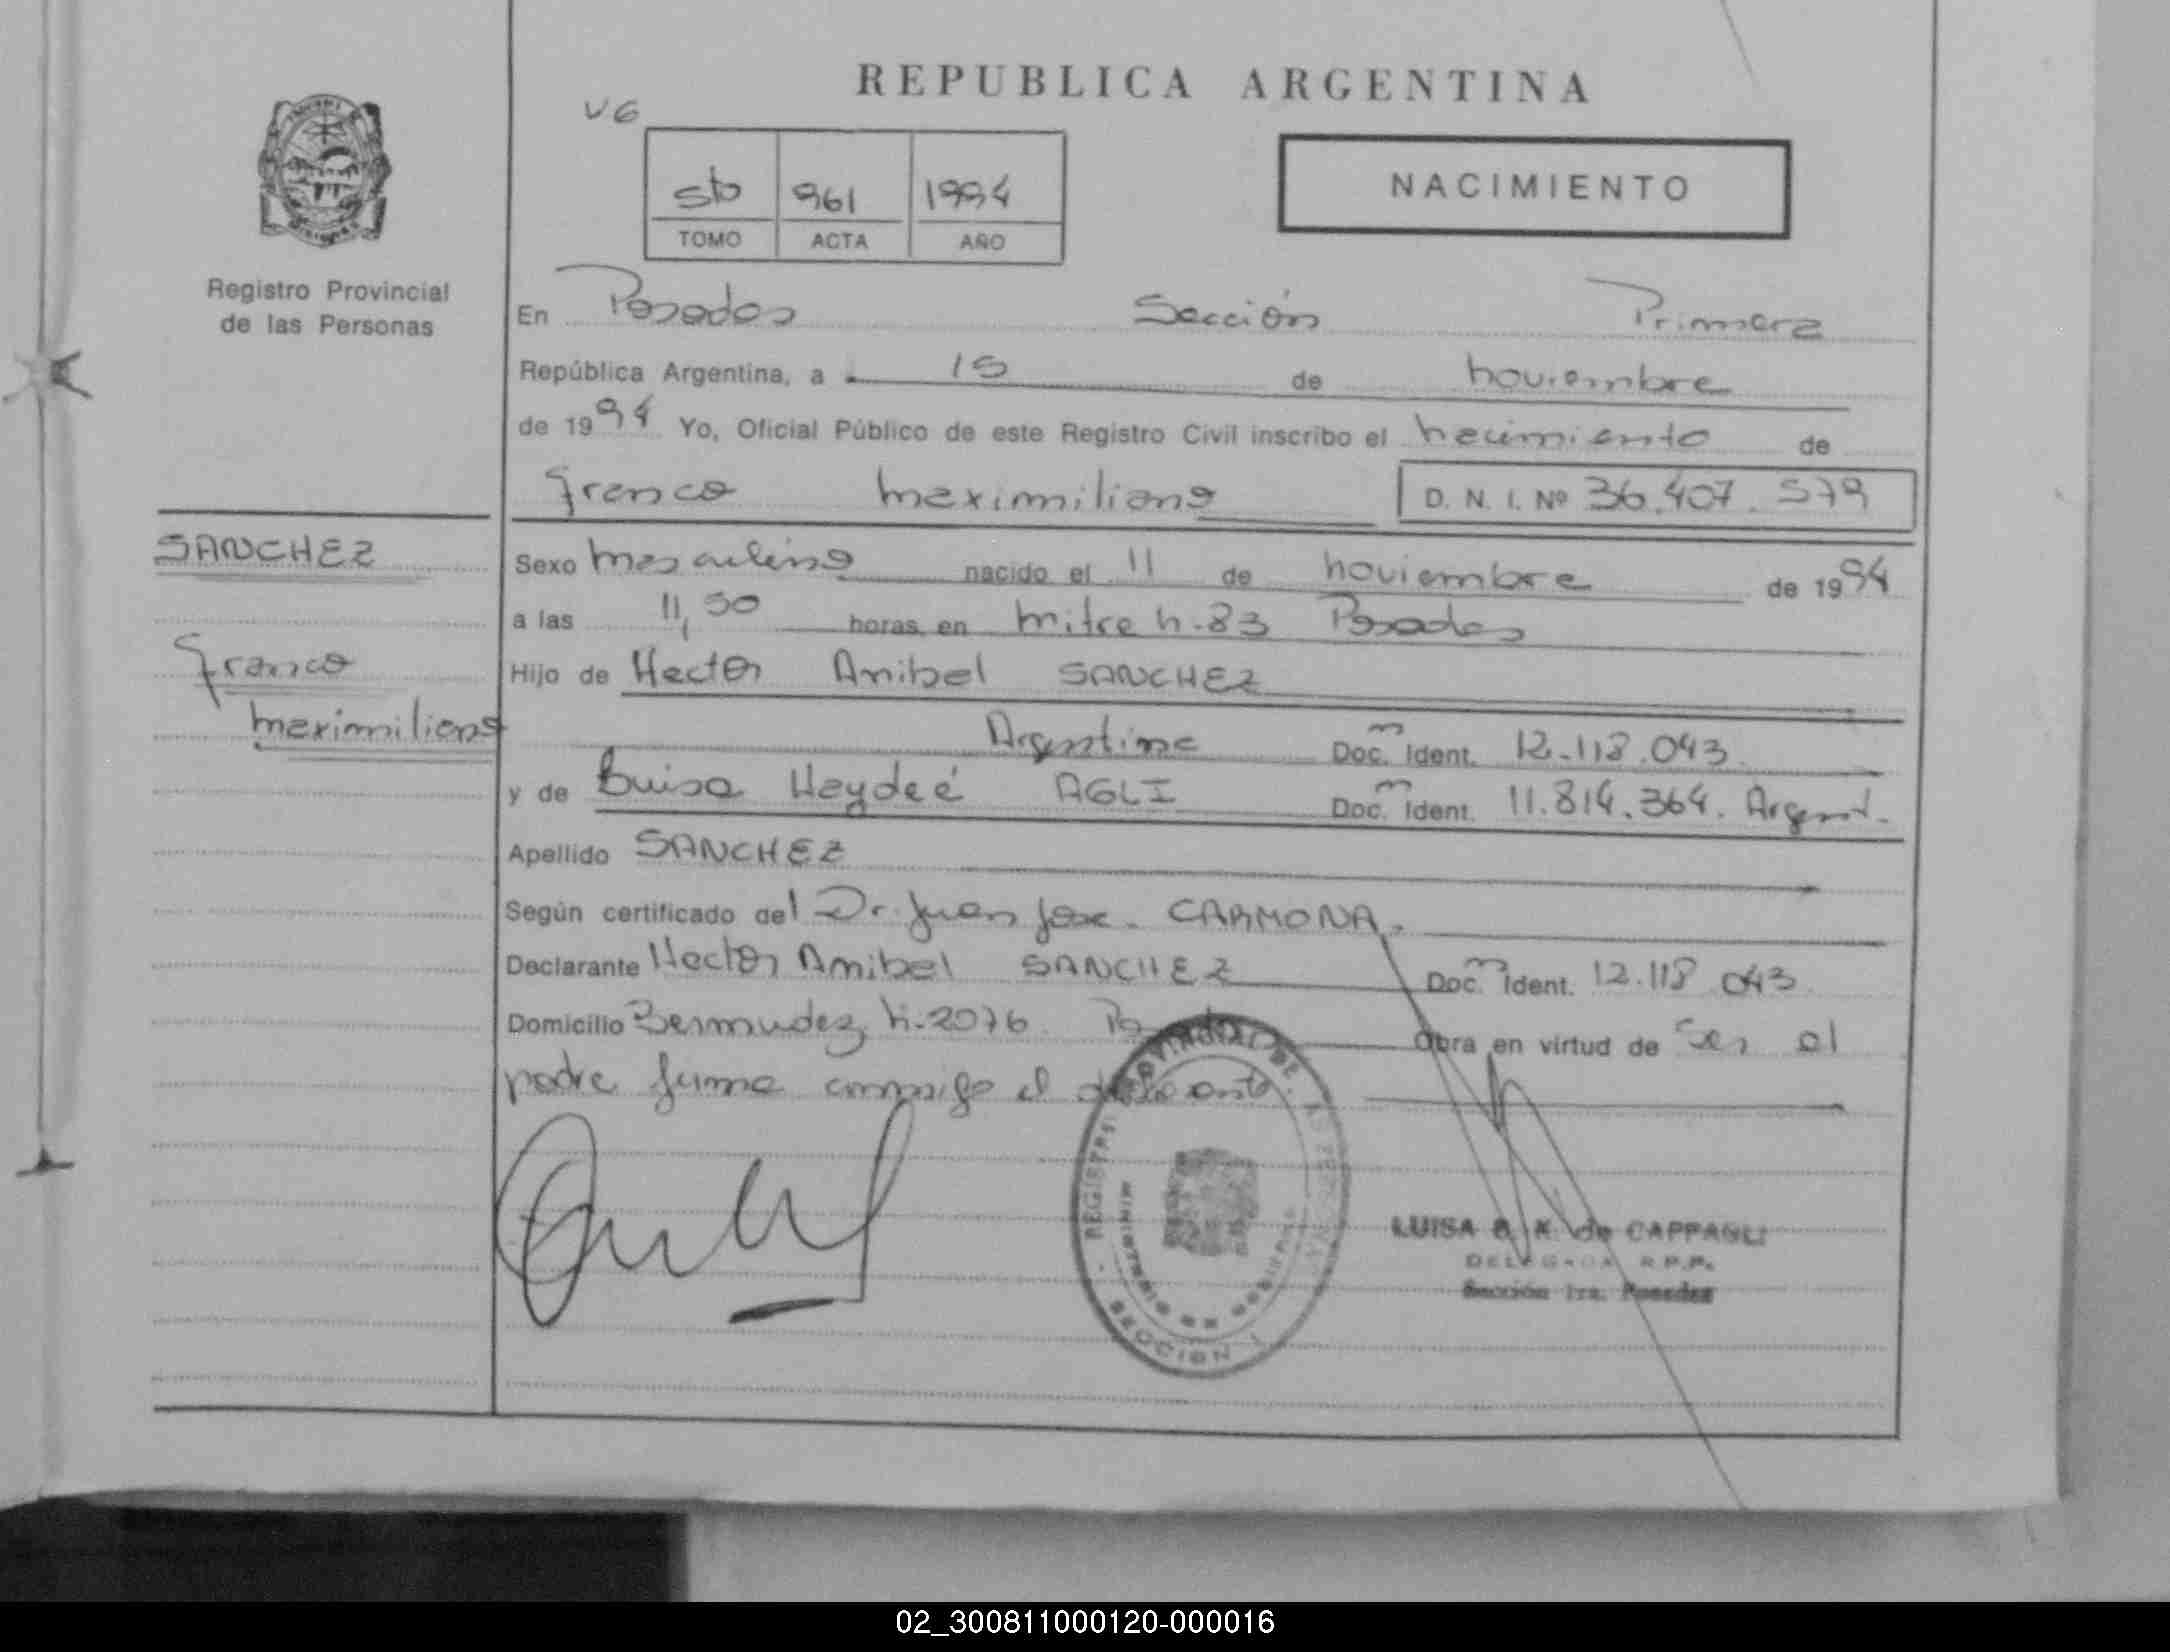 REPUBLICA ARGENTINA
V6
5to 961 1994
TOMO ACTA AÑO
NACIMIENTO
Registro Provincial
de las Personas
En Posadas Sección Primera
República Argentina, a 15 de noviembre
de 1994 Yo, Oficial Público de este Registro Civil inscribo el nacimiento de
Franco Maximiliano D. N. I. Nº 36.407.579
SANCHEZ
Franco
Maximiliano
Sexo masculino nacido el 11 de noviembre de 1994
a las 11,50 horas en Mitre n. 83 Posadas
Hijo de Hector Anibal SANCHEZ
Argentino Doc. m Ident. 12.118.043
y de Luisa Haydeé AGLI Doc. m Ident. 11.814.364. Argent.
Apellido SANCHEZ
Según certificado del Dr. Juan Jose CARMONA.
Declarante Hector Anibal SANCHEZ Doc. m Ident. 12.118.043
Domicilio Bermudez n. 2076 Obra en virtud de ser el
padre firma conmigo el declarante
REGISTRO PROVINCIAL DE LAS PERSONAS
MINISTERIO DE GOBIERNO
SECCION 1
LUISA de CAPPAGLI
DELEGADA R.P.P.
Sección 1ra. Posadas
02_300811000120-000016